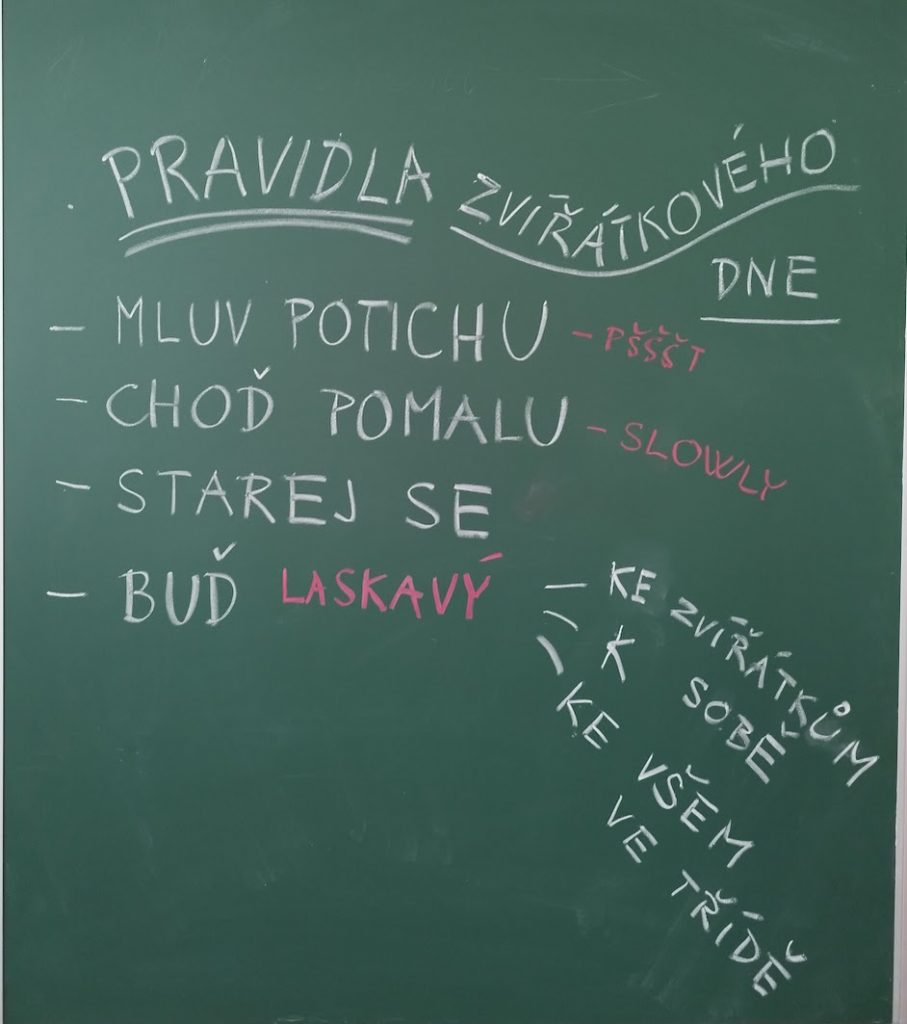 PRAVIDLA ZVÍŘÁTKOVÉHO
DNE
- MLUV POTICHU - PŠŠŠT
- CHOĎ POMALU - SLOWLY
- STAREJ SE
- BUĎ LASKAVÝ
- KE ZVÍŘÁTKŮM
- K SOBĚ
- KE VŠEM
VE TŘÍDĚ